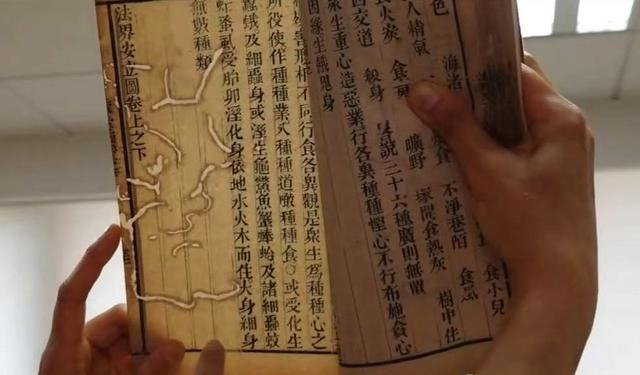 食小兒
海渚
不淨巷陌
樹中住
色
塚間食熱灰
人精氣
曠野
食火炭
四交道
殺身
說三十六種廣則無
眾生重心造惡業行各異種種慳心不行布施貪心
因緣生餓鬼身
形相不同行食各異觀是眾生為種種心之
所役使作種種業入種種道噉種種食○或受化生
蠶蛾及細蟲身或溼生龜鱉魚蟹蜯蛤及諸細蟲蚊
虻蚤蝨受胎卵溼化身依地水火木而住大身細身
無數種類
法界安立圖卷上之下